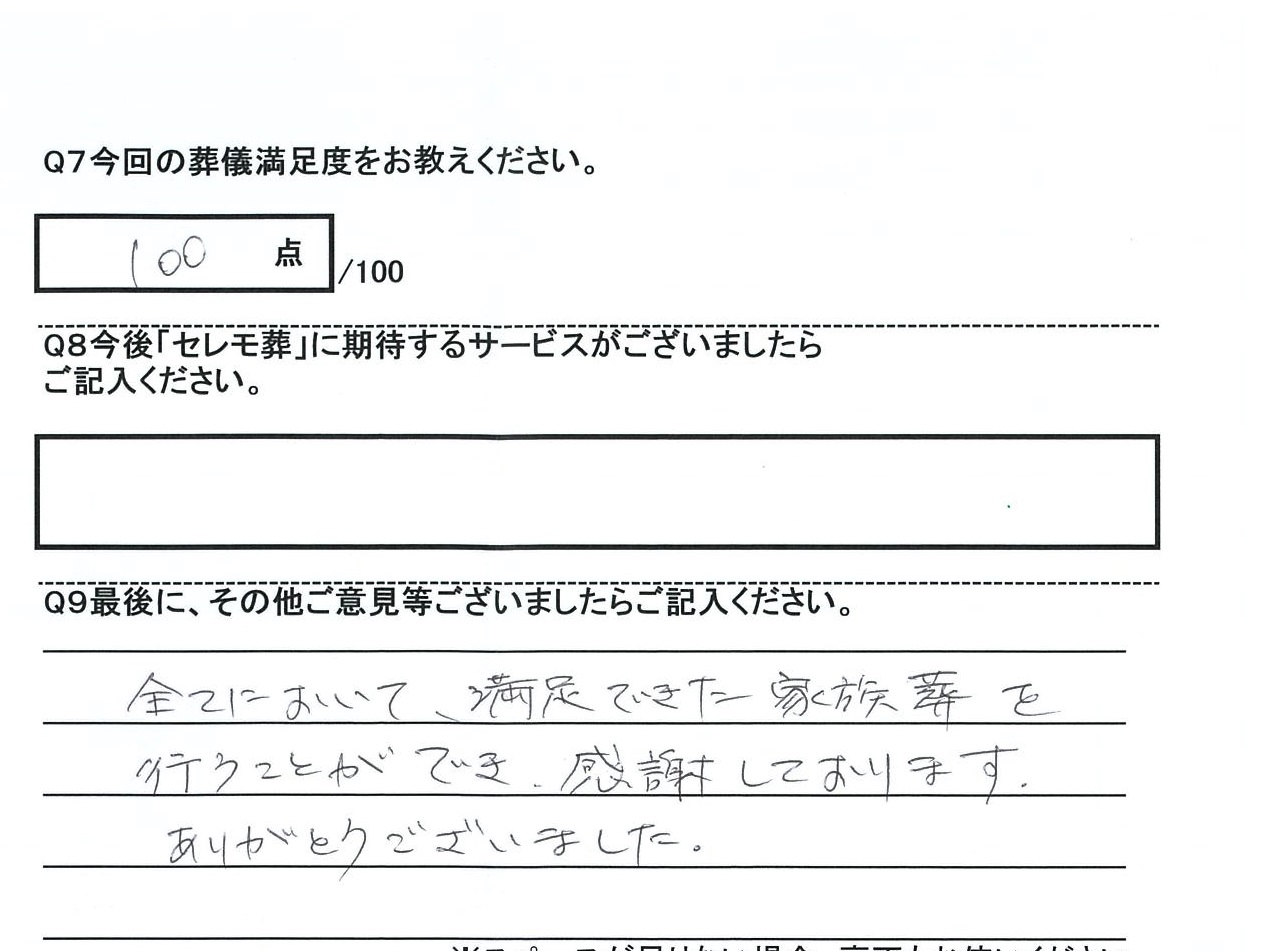 Q7今回の葬儀満足度をお教えください。
100 点 /100
Q8今後「セレモ葬」に期待するサービスがございましたら
ご記入ください。
Q9最後に、その他ご意見等ございましたらご記入ください。
全てにおいて、満足できた家族葬を
行うことができ、感謝しております。
ありがとうございました。